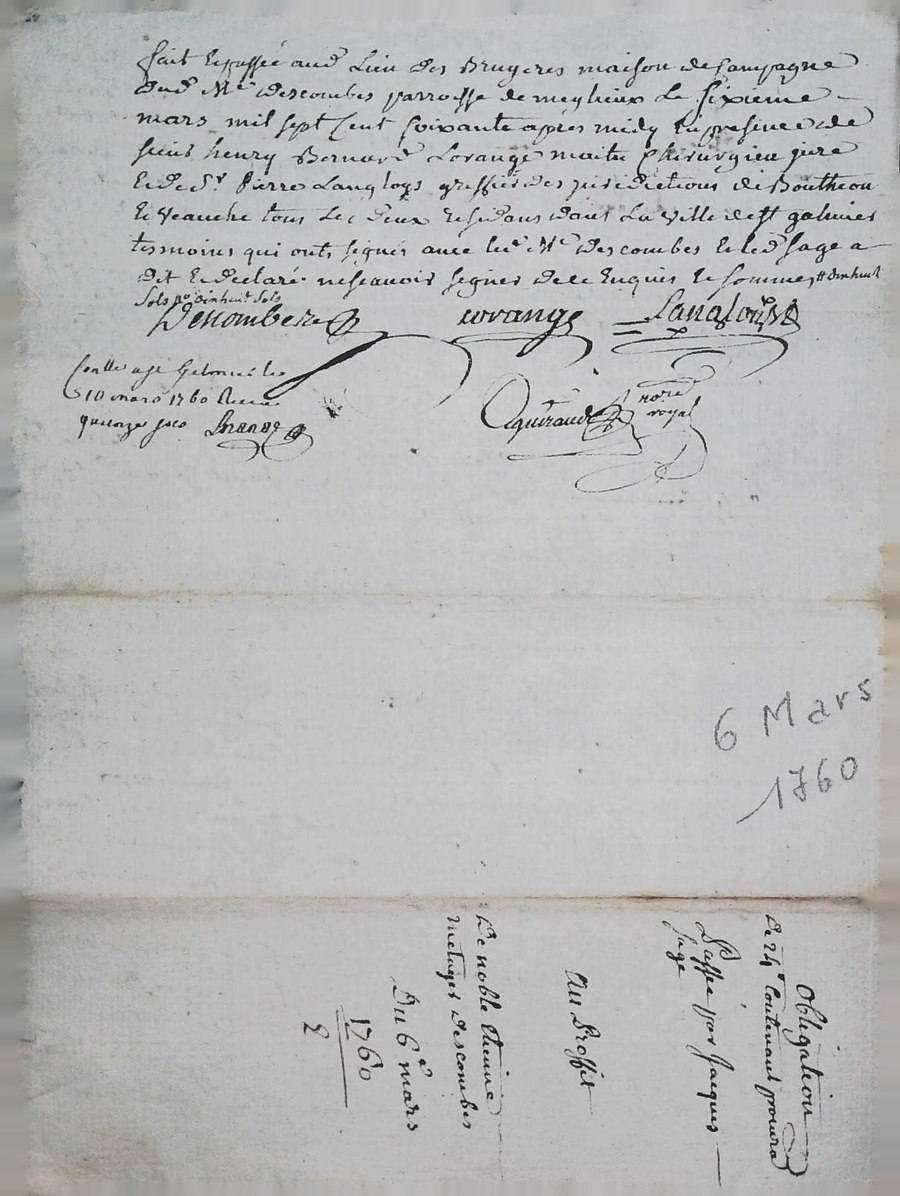 fait et passé aud. Lieu des Bruyeres maison de Campagne
dud. Me. descombes parroisse de meylieux Le sixieme
mars mil sept Cent soixante apres midy En presence de
sieur henry Bernard Lorange maitre Chirurgien juré
et de sr. Pierre Langloys greffier des jurisdictions de Bouthéon
et Veauche tous Les deux residans dans La Ville de st galmier
tesmoins qui onts signés avec led. Me. descombes et led. sage a
dit et declaré ne scavoir signer de ce Enquis et sommé
sols
Lorange Langlois
Conllé a st Galmier le
10 mars 1760 Recu
quatorze sols
guiraud no.re
royal
6 Mars
1760
Obligation
de 24# Contenant
Passée par Jacques
Sage
Au Proffit
De noble
descombes
Du 6e mars
1760